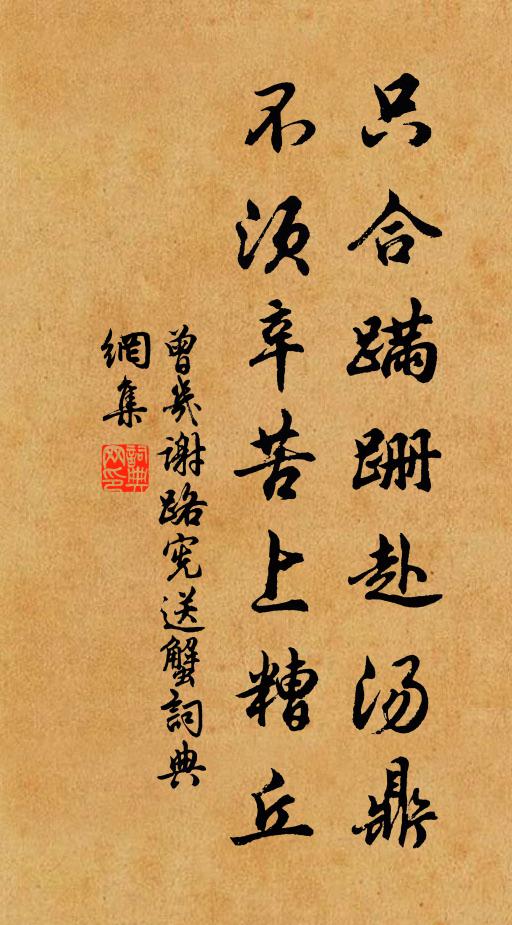 只合蹒跚赴汤鼎
不须辛苦上糟丘
曾幾谢路宪送蟹詞典
網集
詞典網印